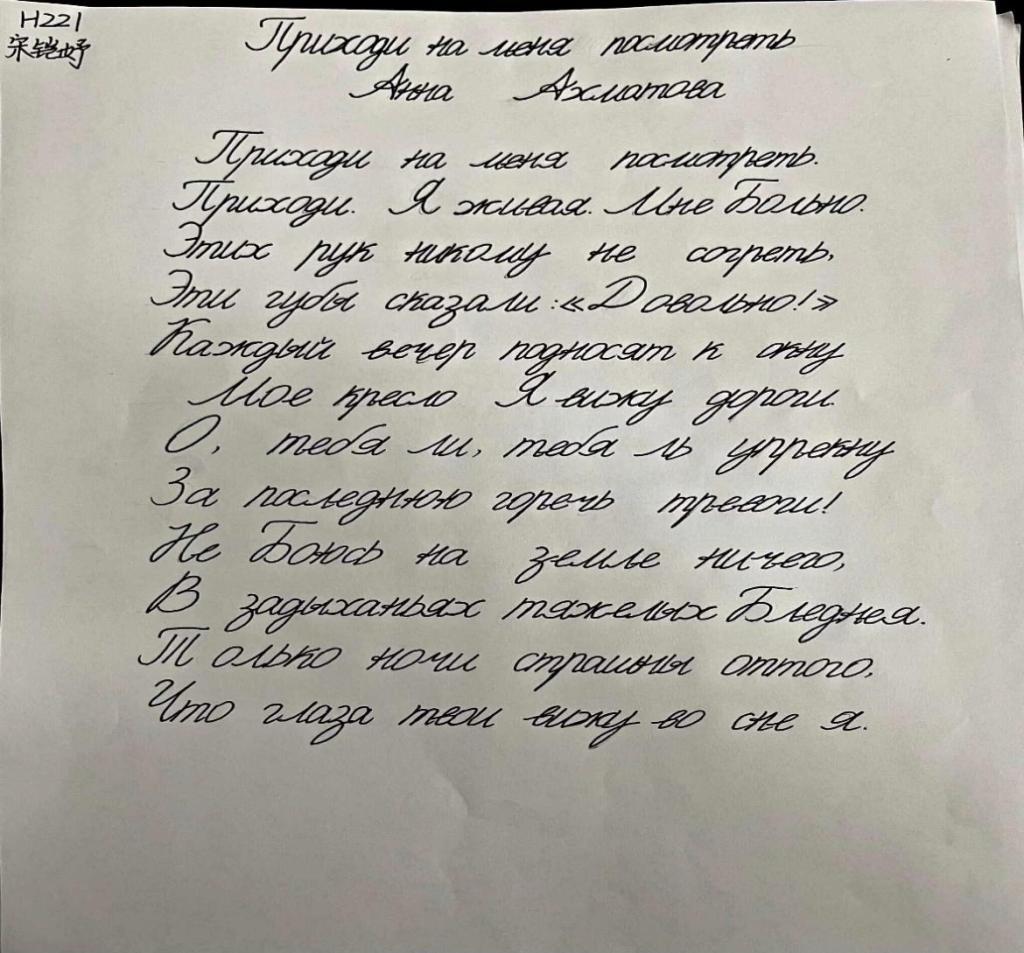 H221
宋铠妤
Приходи на меня посмотреть
Анна Ахматова
Приходи на меня посмотреть.
Приходи. Я живая. Мне Больно.
Этих рук никому не согреть,
Эти губы сказали: «Довольно!»
Каждый вечер подносят к окну
Мое кресло Я вижу дороги.
О, тебя ли, тебя ль упрекну
За последнюю горечь тревоги!
Не Боюсь на земле ничего,
В задыханьях тяжелых Бледнея.
Только ночи страшны оттого,
Что глаза твои вижу во сне я.